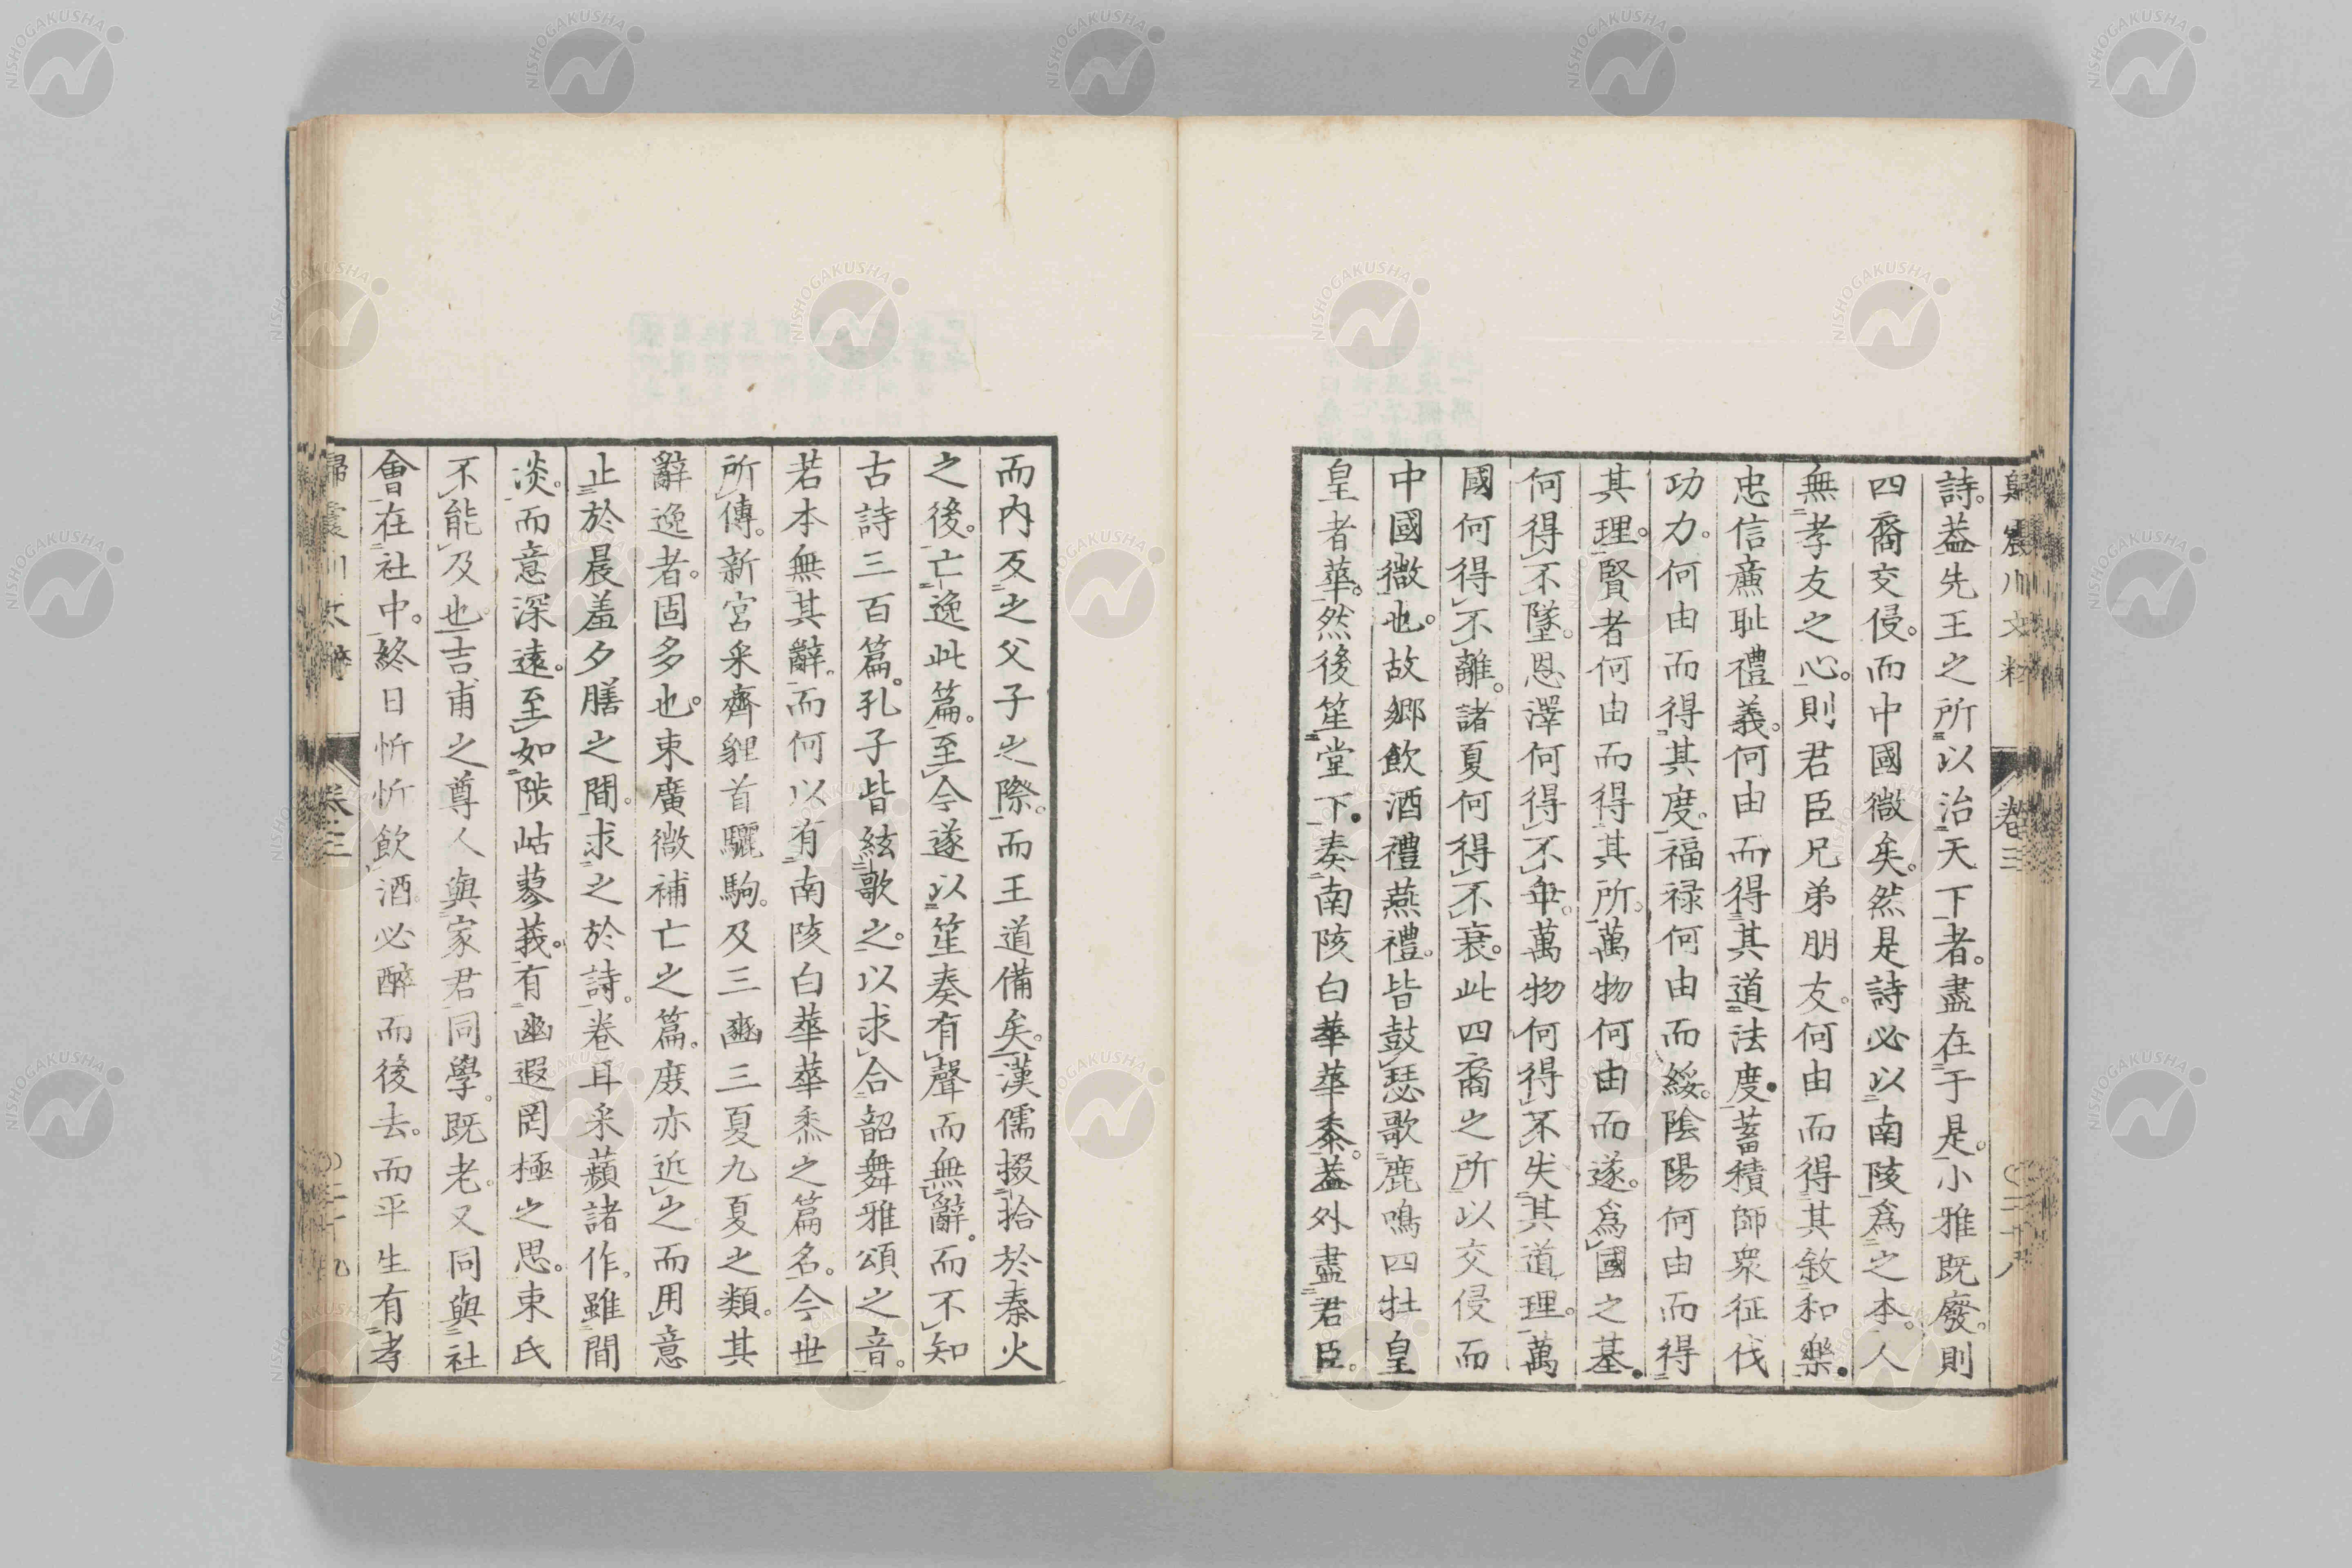 歸震川文粹 卷三 〇二十八
詩。蓋先王之所以治天下者。盡在于是。小雅既廢。則
四裔交侵。而中國微矣。然是詩必以南陔爲之本。人
無孝友之心。則君臣兄弟朋友。何由而得其敘和樂。
忠信廉耻禮義。何由而得其道法度。蓄積師衆征伐
功力。何由而得其度。福禄何由而綏。陰陽何由而得
其理。賢者何由而得其所。萬物何由而遂。爲國之基。
何得不墜。恩澤何得不乖。萬物何得不失其道理。萬
國何得不離。諸夏何得不衰。此四裔之所以交侵而
中國微也。故郷飲酒禮燕禮。皆鼓瑟歌鹿鳴四牡皇
皇者華。然後笙堂下。奏南陔白華華黍。蓋外盡君臣。
而内反之父子之際。而王道備矣。漢儒掇拾於秦火
之後。亡逸此篇。至今遂以笙奏有聲而無辭。而不知
古詩三百篇。孔子皆絃歌之。以求合韶舞雅頌之音。
若本無其辭。而何以有南陔白華華黍之篇名。今世
所傳。新宮采齊貍首驪駒。及三豳三夏九夏之類。其
辭逸者。固多也。束廣微補亡之篇。庶亦近之。而用意
止於晨羞夕膳之間。求之於詩。卷耳采蘋諸作。雖間
淡。而意深遠。至如陟岵蓼莪。有幽遐罔極之思。束氏
不能及也。吉甫之尊人與家君同學。既老。又同與社
會在社中。終日忻忻飲酒。必醉而後去。而平生有孝
歸震川文粹 卷三 〇二十九